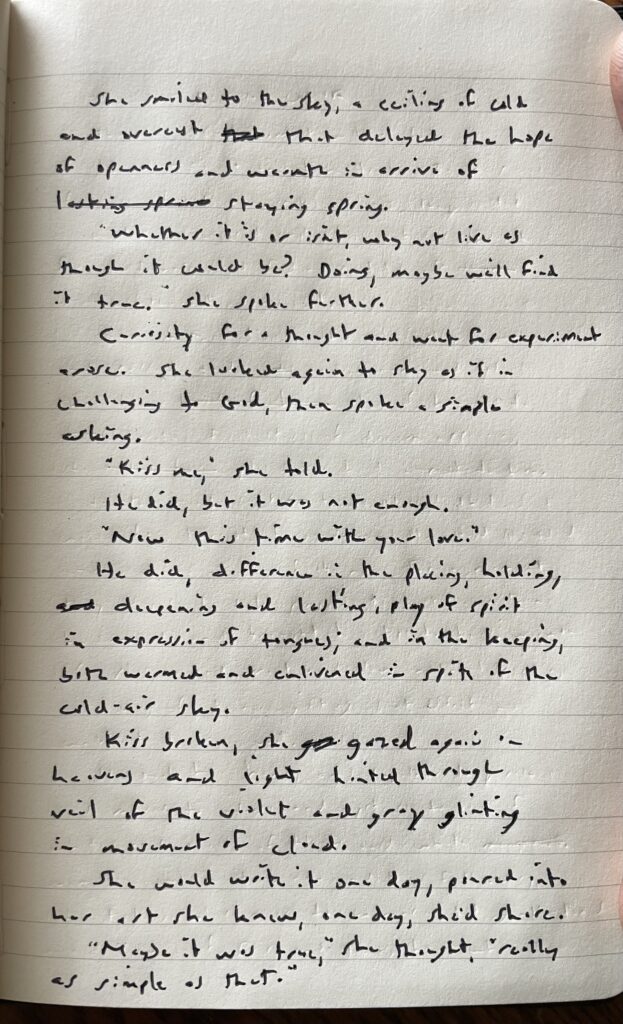 She smiled to the sky, a ceiling of cold
and overcast that that delayed the hope
of openness and warmth in arrive of
lasting spring staying spring.
"Whether it is or isn't, why not live as
though it could be? Doing, maybe we'll find
it true." She spoke further.
Curiosity for a thought and want for experiment
arose. She looked again to sky as if in
challenging to God, then spoke a simple
asking.
"Kiss me," she told.
He did, but it was not enough.
"Now this time with your love."
He did, difference in the placing, holding,
and deepening and lasting, play of spirit
in expression of tongues; and in the keeping,
both warmed and enlivened in spite of the
cold-air sky.
Kiss broken, she gazed again in
heavens and light hinted through
veil of the violet and gray glinting
in movement of cloud.
She would write it one day, poured into
her art she knew, one day, she'd share.
"Maybe it was true," she thought, "really
as simple as that."